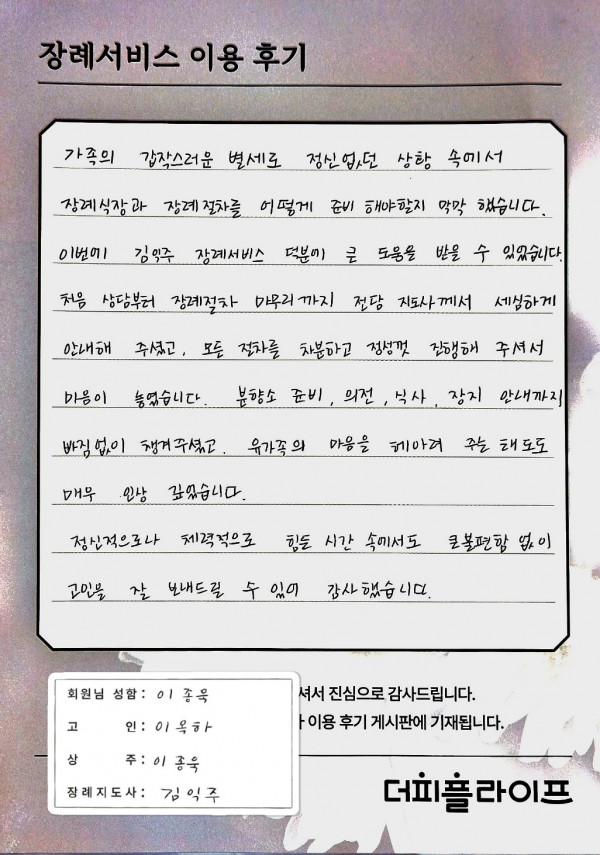 장례서비스 이용 후기
가족의 갑작스러운 별세로 정신없던 상황 속에서
장례식장과 장례절차를 어떻게 준비 해야할지 막막 했습니다.
이번에 김익주 장례서비스 덕분에 큰 도움을 받을 수 있었습니다.
처음 상담부터 장례절차 마무리까지 전담 지도사께서 세심하게
안내해 주셨고, 모든 절차를 차분하고 정성껏 진행해 주셔서
마음이 놓였습니다. 분향소 준비, 의전, 식사, 장지 안내까지
빠짐없이 챙겨주셨고. 유가족의 마음을 헤아려 주는 태도도
매우 인상 깊었습니다.
정신적으로나 체력적으로 힘든 시간 속에서도 큰불편함 없이
고인을 잘 보내드릴 수 있어 감사했습니다.
회원님 성함: 이종욱
고 인: 이옥하
상 주: 이종욱
장례지도사: 김익주
셔서 진심으로 감사드립니다.
이용 후기 게시판에 기재됩니다.
더피플라이프